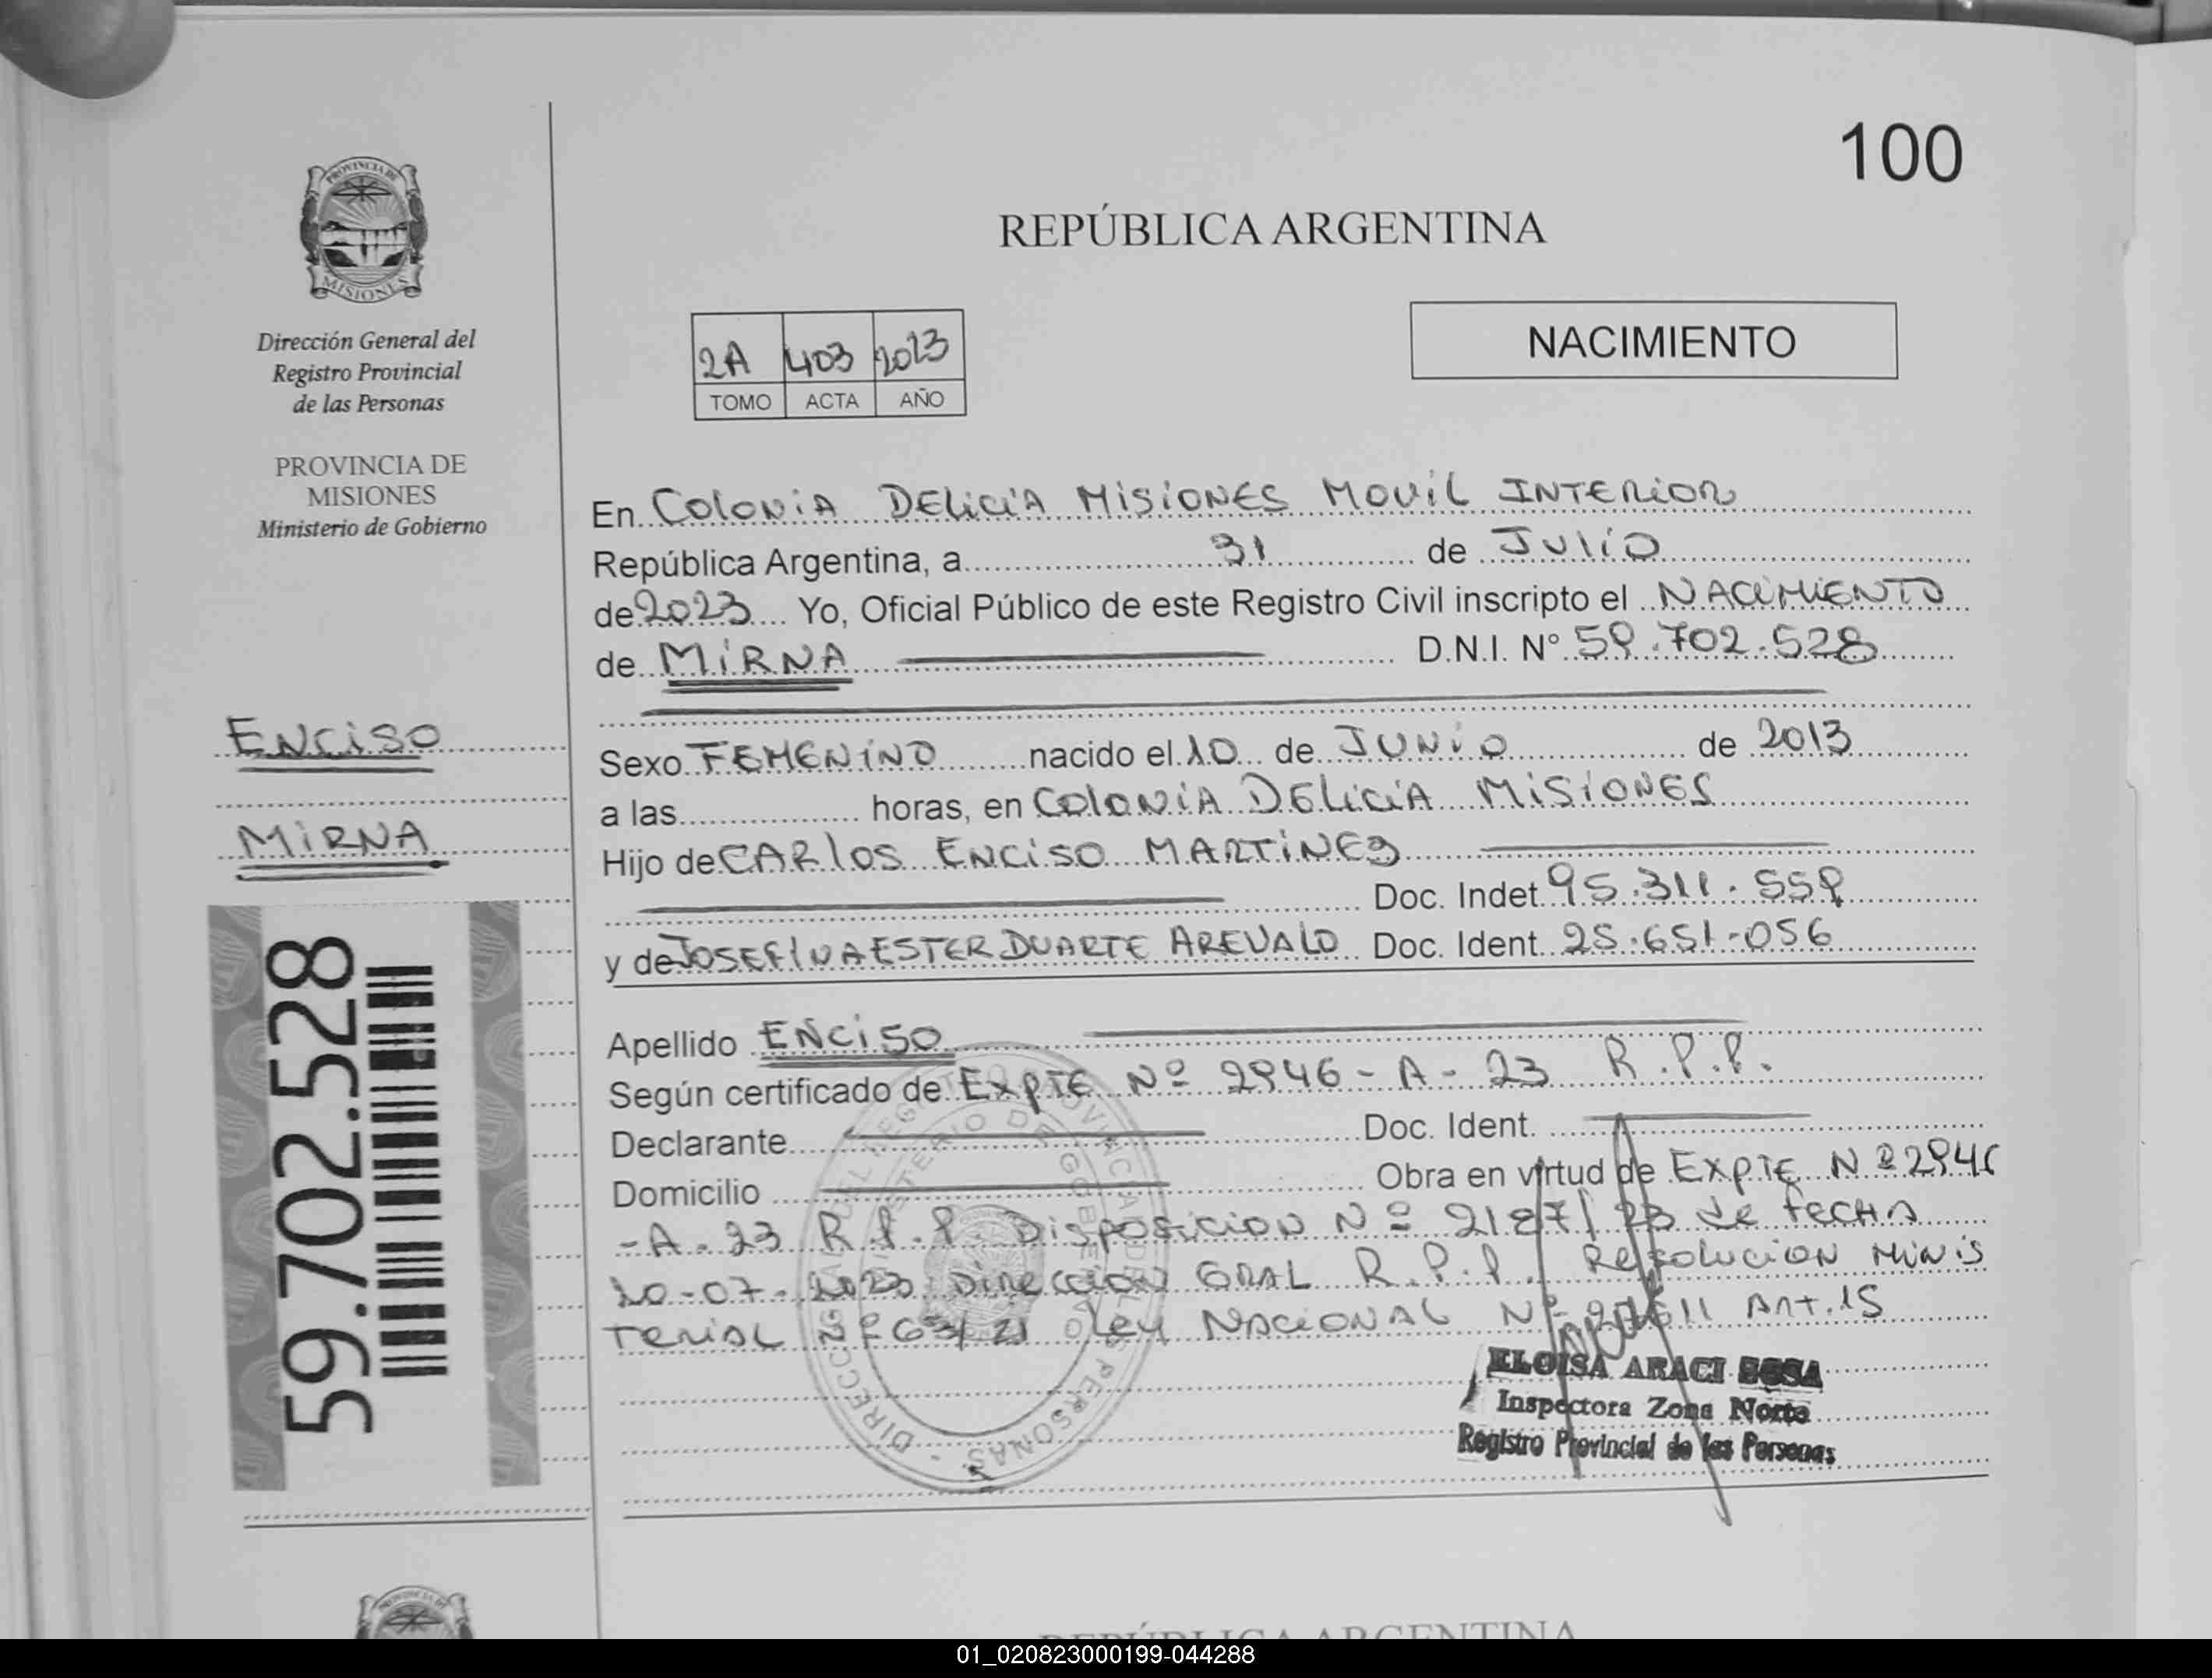 100
PROVINCIA DE
MISIONES
Dirección General del
Registro Provincial
de las Personas
PROVINCIA DE
MISIONES
Ministerio de Gobierno
ENCISO
MIRNA
59.702.528
REPÚBLICA ARGENTINA
NACIMIENTO
2A 403 2023
TOMO ACTA AÑO
En COLONIA DELICIA MISIONES MOVIL INTERIOR
República Argentina, a 31 de JULIO
de 2023 Yo, Oficial Público de este Registro Civil inscripto el NACIMIENTO
de MIRNA D.N.I. N° 59.702.528
Sexo FEMENINO nacido el 10 de JUNIO de 2013
a las horas, en COLONIA DELICIA MISIONES
Hijo de CARLOS ENCISO MARTINEZ
Doc. Indet. 95.311.559
y de JOSEFINA ESTER DUARTE AREVALO Doc. Ident. 25.651.056
Apellido ENCISO
Según certificado de EXPTE Nº 2946 - A - 23 R.P.P.
Declarante Doc. Ident.
Domicilio Obra en virtud de EXPTE Nº 2946
- A - 23 R.P.P. DISPOSICION Nº 2187/23 de FECHA
20-07-2023 DIRECCION GRAL R.P.P. RESOLUCION MINIS
TERIAL Nº 63/21 LEY NACIONAL Nº 27611 ART. 15
DIRECCION GENERAL DEL REGISTRO PROVINCIAL DE LAS PERSONAS
MINISTERIO DE GOBIERNO
ELOISA ARACI SOSA
Inspectora Zona Norte
Registro Provincial de las Personas
REPÚBLICA ARGENTINA
01_020823000199-044288